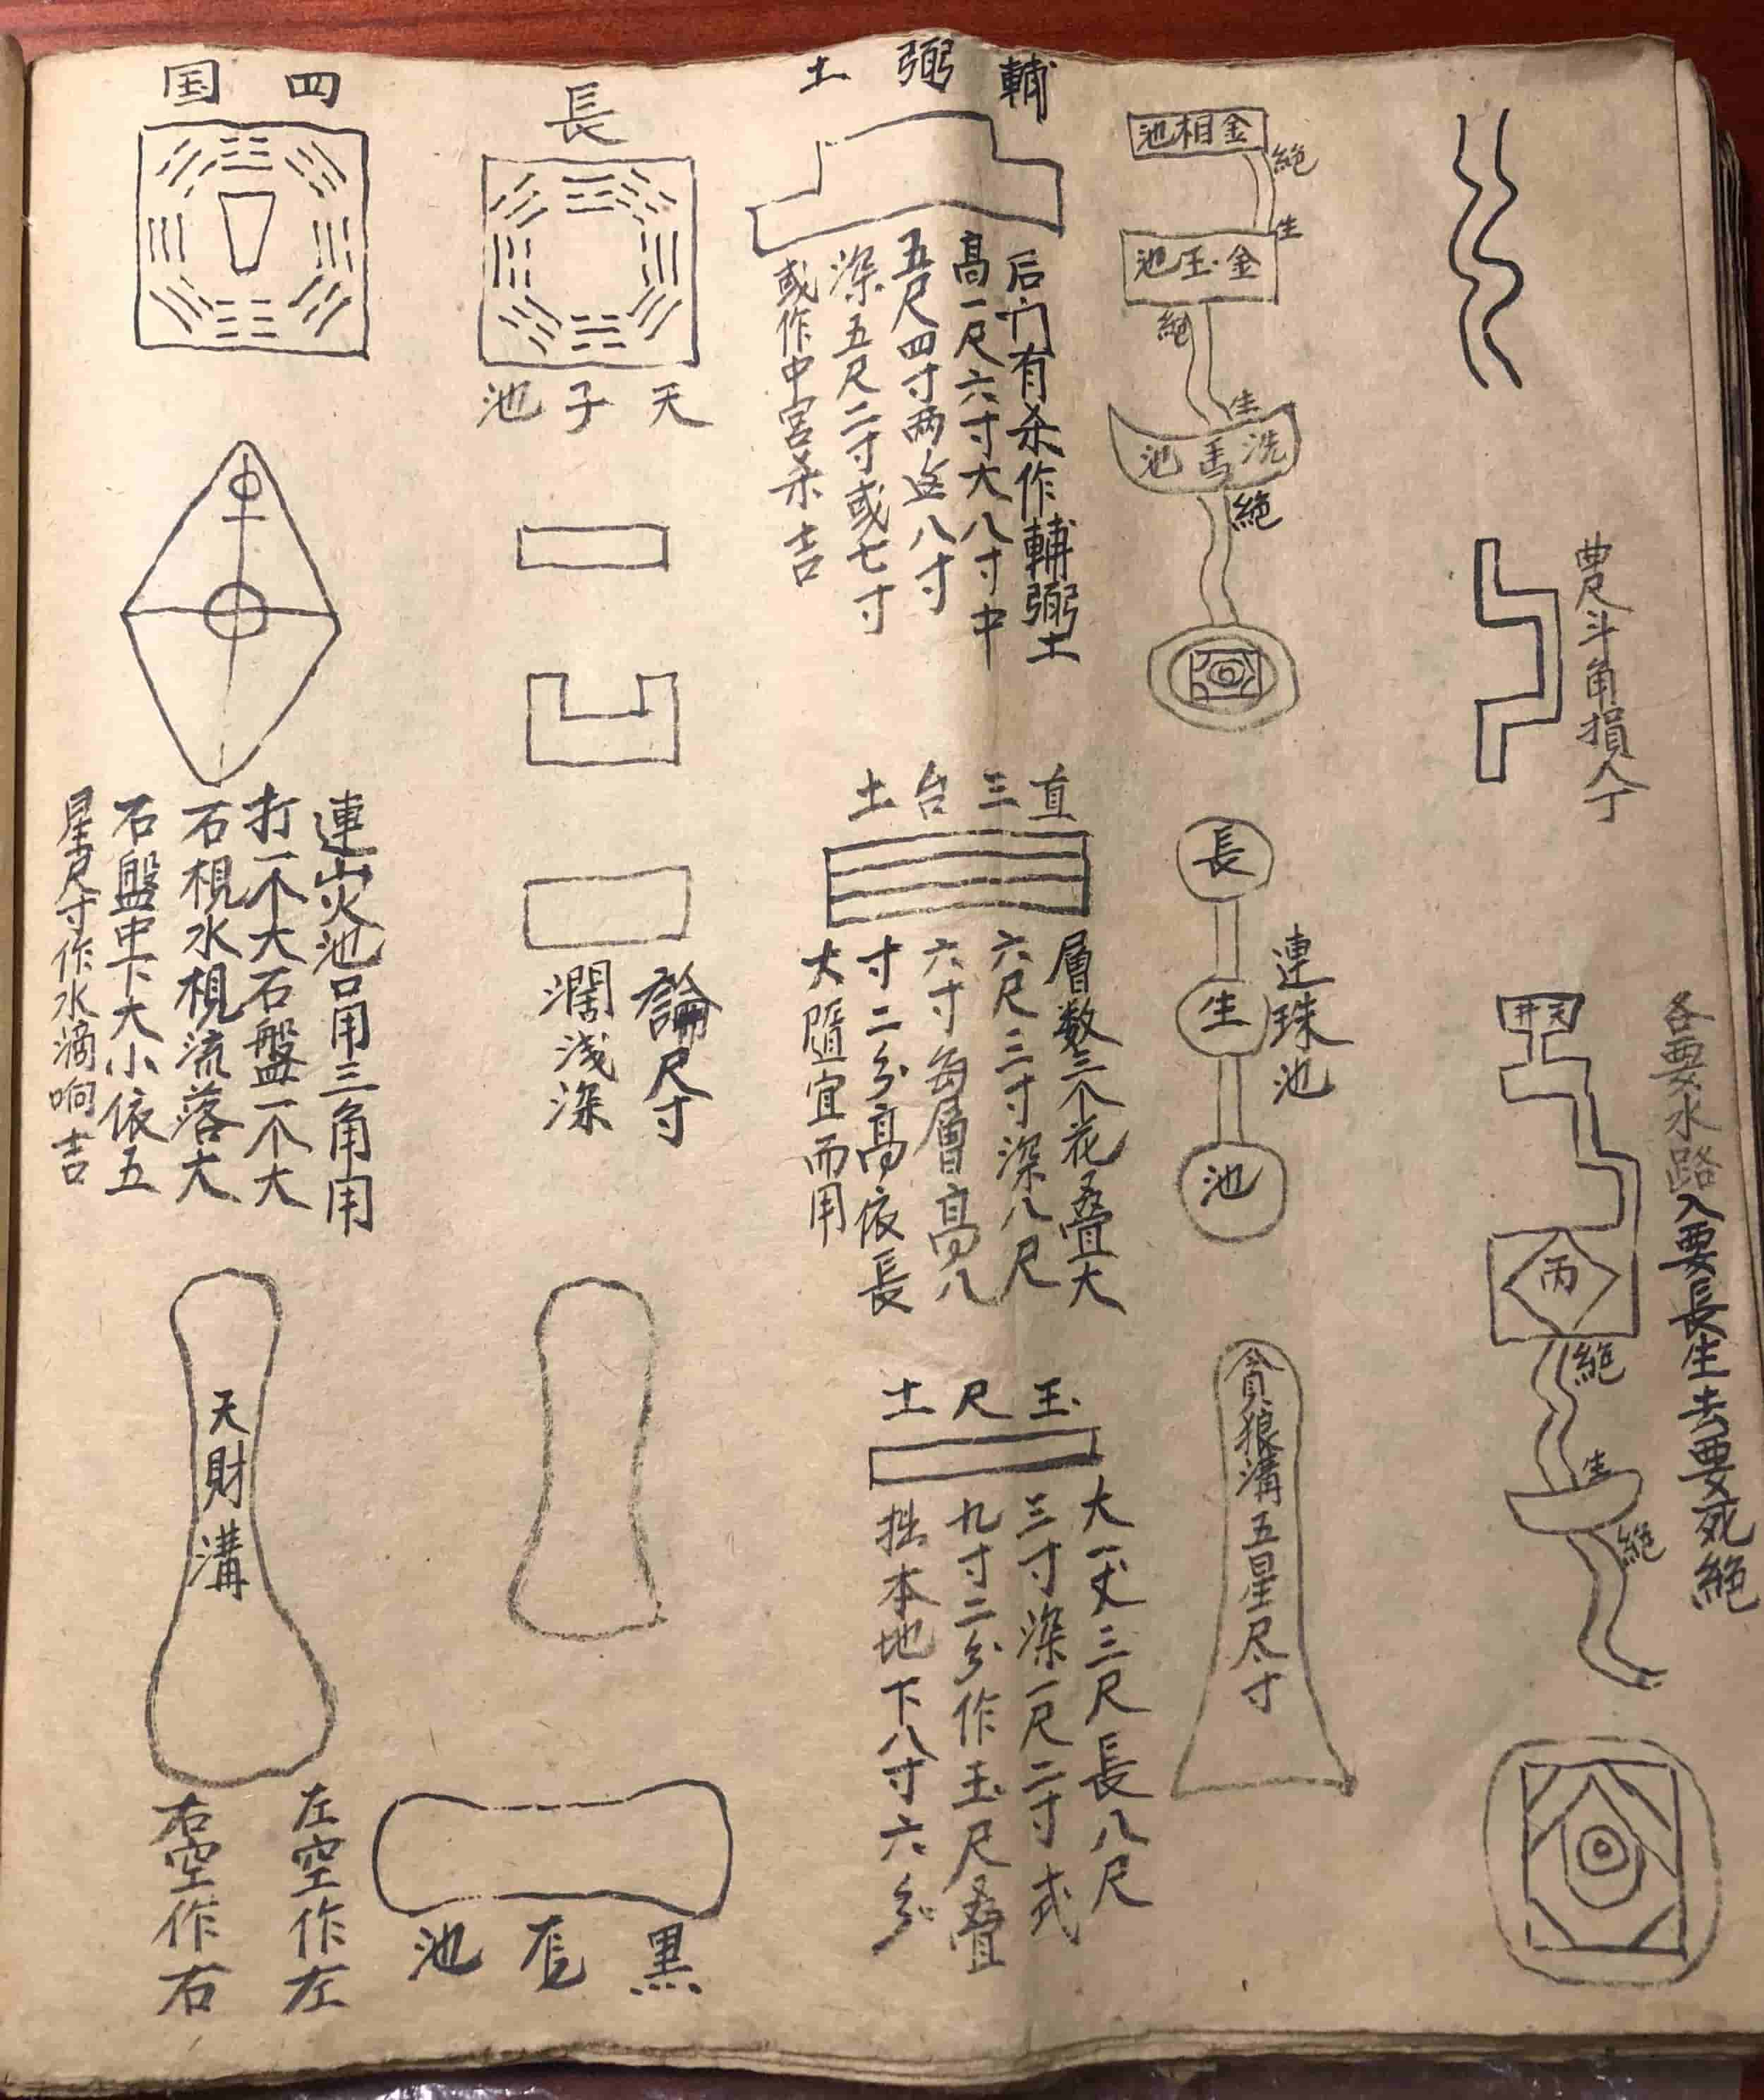 農斗角損人丁
各要水路入要長生去要死絕
天井
丙
絕
生
絕
金相池
絕
生
金玉池
絕
生
洗馬池
絕
連珠池
長
生
池
貪狼溝五星尺寸
輔弼土
后门有杀作輔弼土
高一尺六寸大八寸中
五尺四寸两邊八寸
深五尺二寸或七寸
或作中宮杀吉
直三台土
層数三个花叠大
六尺三寸深八尺
六寸每層高八
寸二分高依長
大隨宜而用
玉尺土
大一丈三尺長八尺
三寸深一尺二寸式
九寸二分作玉尺叠
拙本地下八寸六分
長
天子池
論尺寸
濶浅深
黑池
四国
連火池口用三角用
打一个大石盤一个大
石棍水棍流落大
石盤中下大小依五
星尺寸作水滴响吉
天財溝
左空作左
右空作右